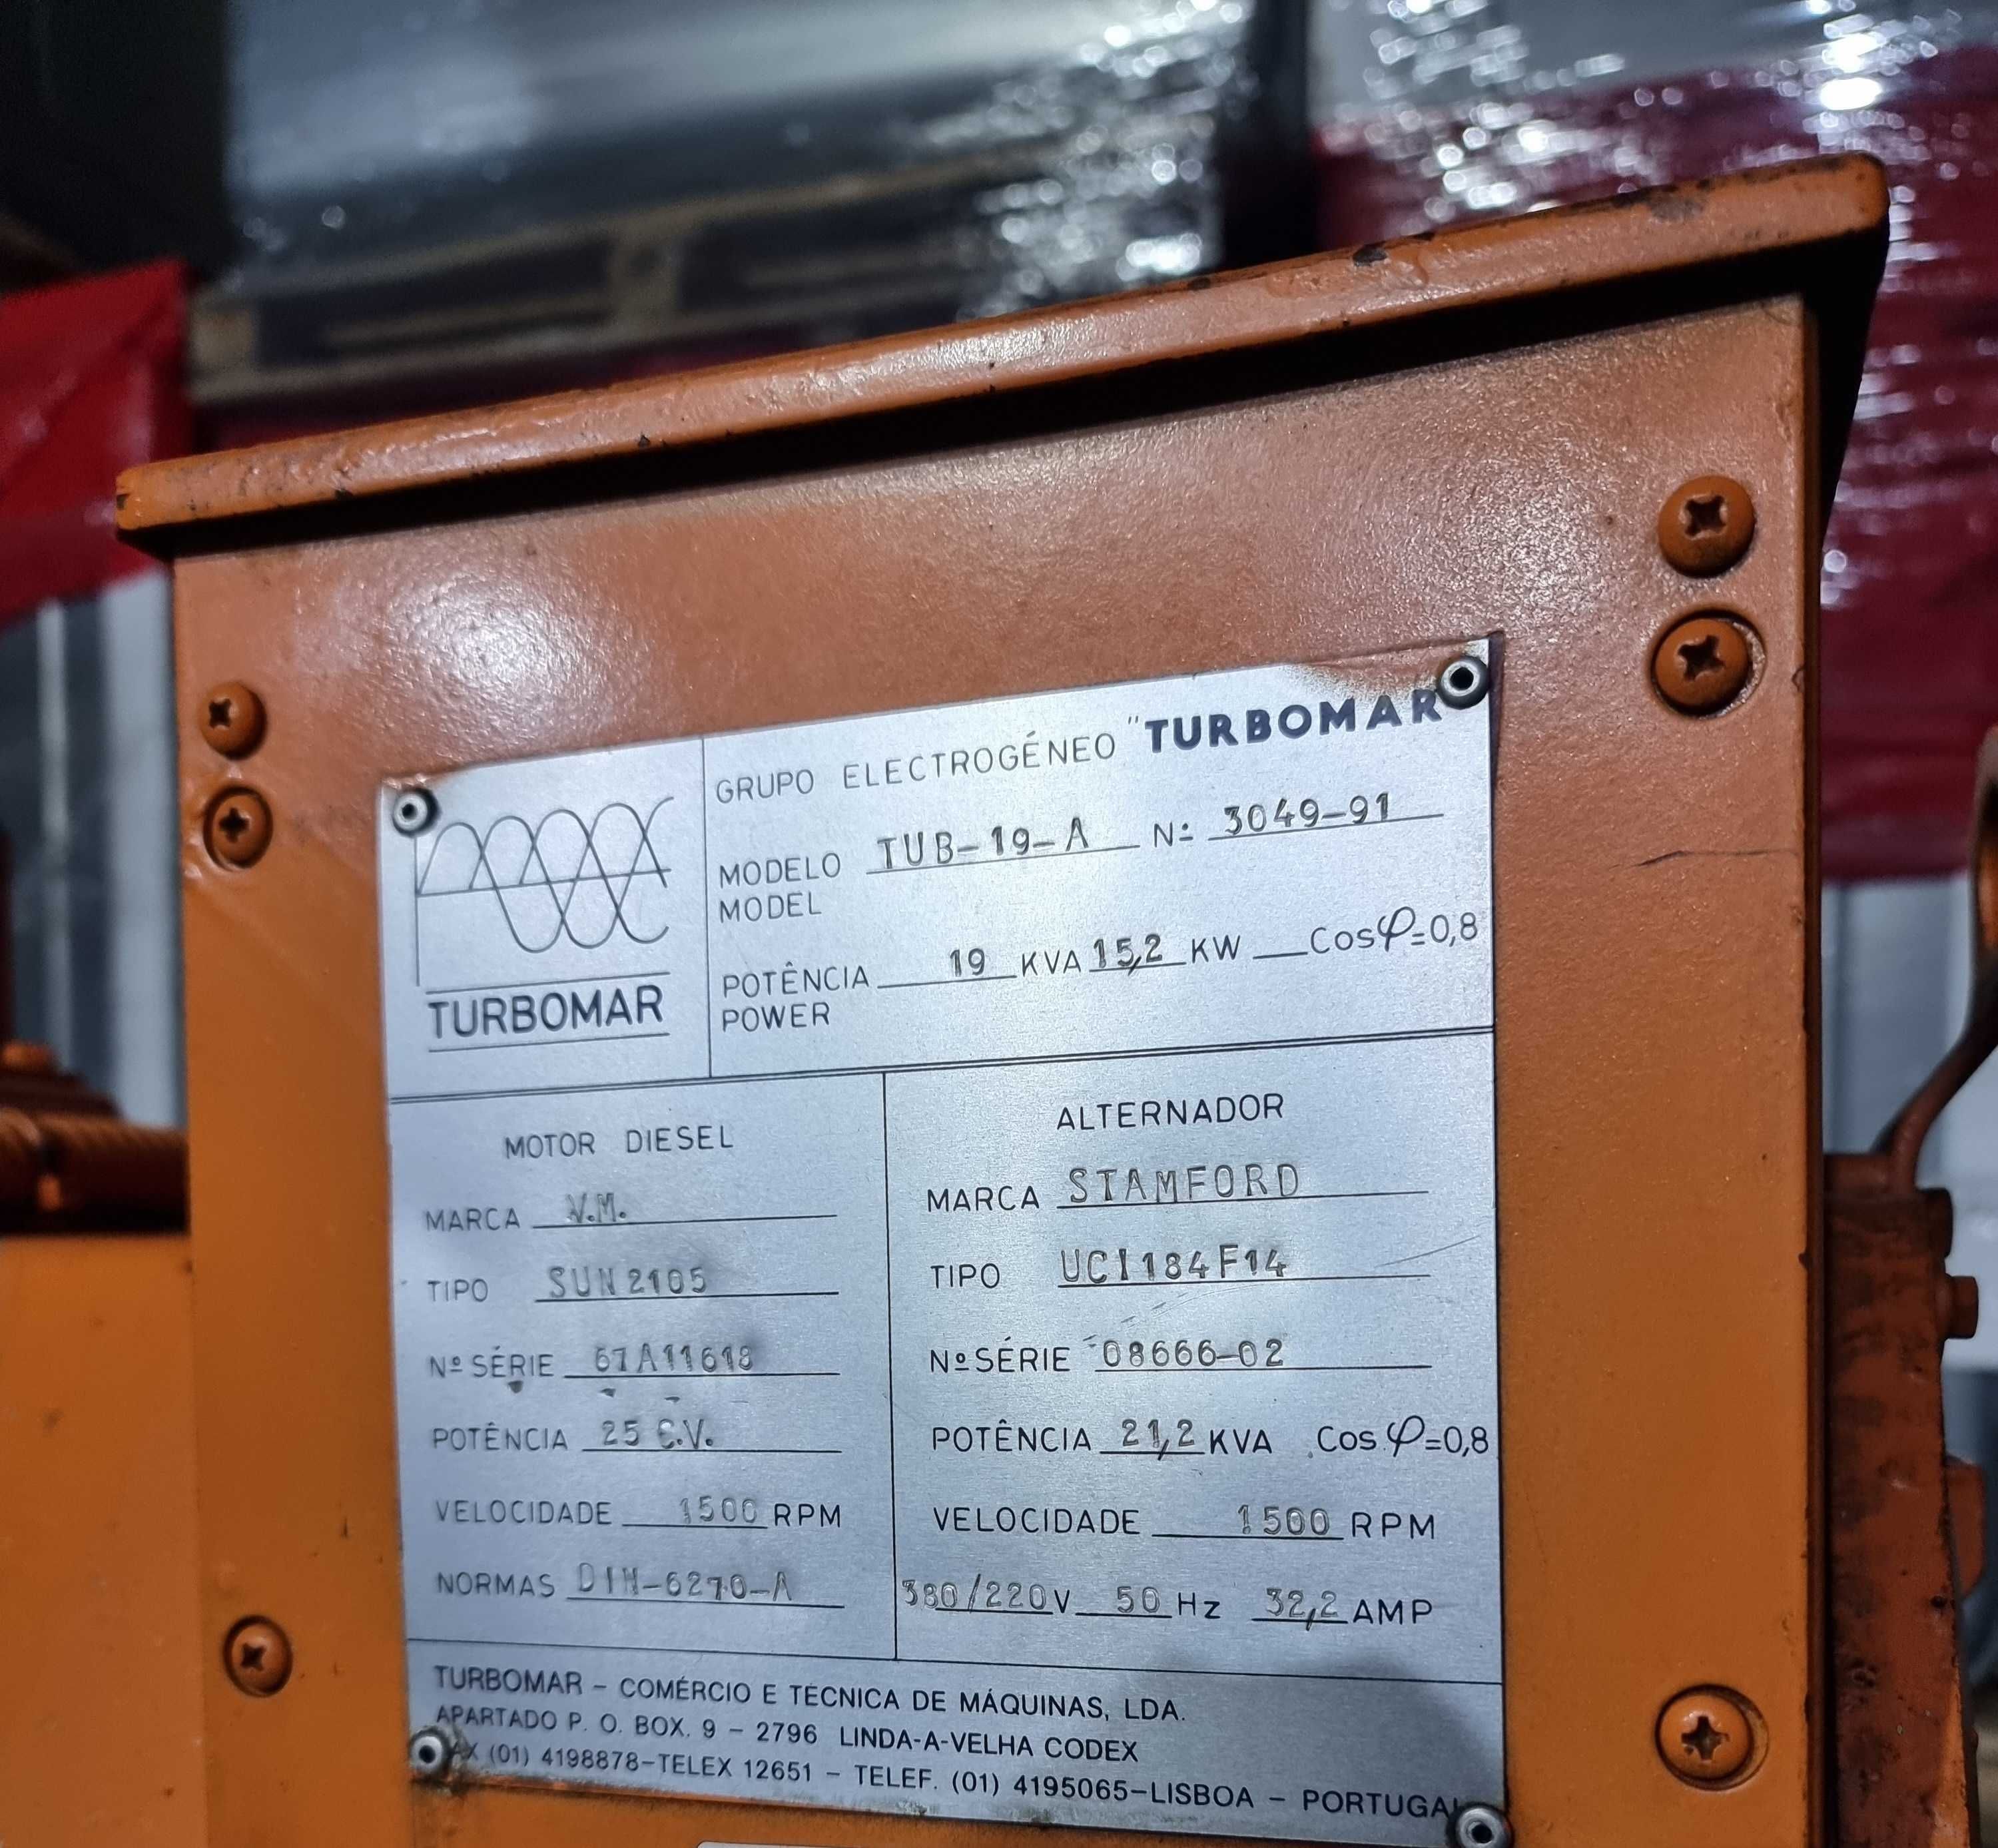 GRUPO ELECTROGÉNEO "TURBOMAR
MODELO TUB-19-A Nº 3049-91
MODEL
POTÊNCIA 19 KVA 15,2 KW Cosφ=0,8
POWER
TURBOMAR
MOTOR DIESEL
MARCA V.M.
TIPO SUN 2105
Nº SÉRIE 67A11618
POTÊNCIA 25 C.V.
VELOCIDADE 1500 RPM
NORMAS DIN-6270-A
ALTERNADOR
MARCA STAMFORD
TIPO UCI184F14
Nº SÉRIE 08666-02
POTÊNCIA 21,2 KVA Cos φ=0,8
VELOCIDADE 1500 RPM
380/220V 50 Hz 32,2 AMP
TURBOMAR - COMÉRCIO E TÉCNICA DE MÁQUINAS, LDA.
APARTADO P. O. BOX. 9 - 2796 LINDA-A-VELHA CODEX
(01) 4198878-TELEX 12651 - TELEF. (01) 4195065-LISBOA - PORTUGAL